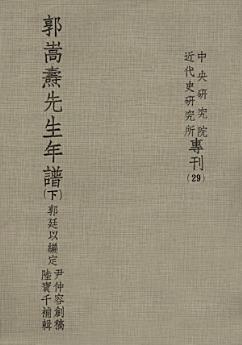 中央研究院
近代史研究所
專刊
(29)
郭嵩燾先生年譜
(下)
郭廷以編定
尹仲容創稿
陸寶千補輯